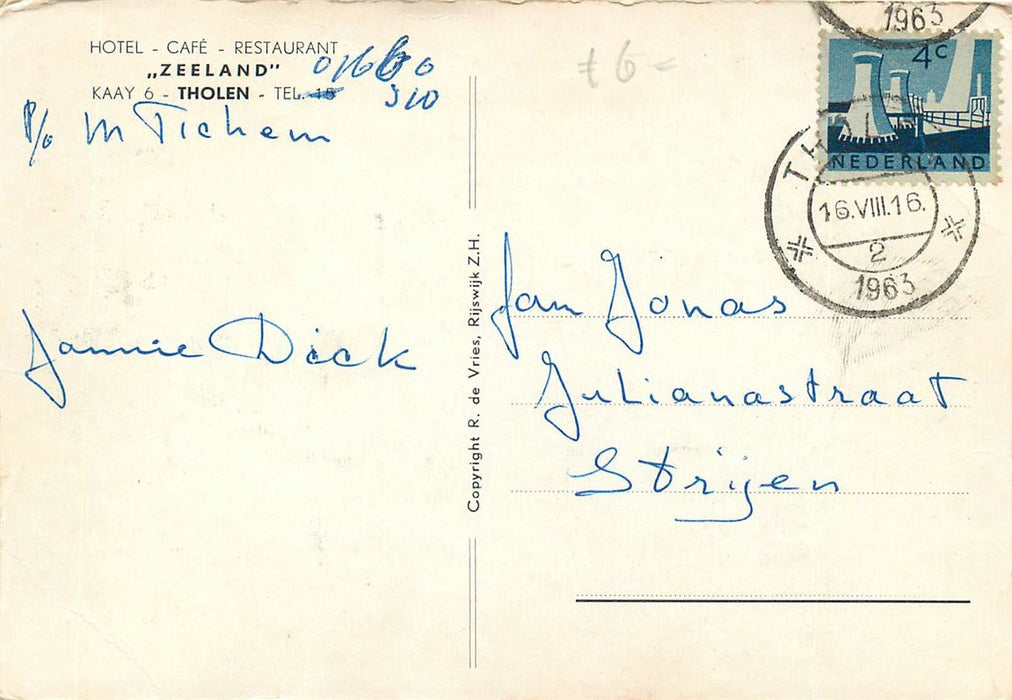 HOTEL - CAFÉ - RESTAURANT
„ZEELAND"
KAAY 6 - THOLEN - TEL. 15
01660
310
P/o M Tichem
Jannie Dick
Copyright R. de Vries, Rijswijk Z.H.
£6-
1963
4c
NEDERLAND
THOLEN
16.VIII.16.
2
1963
Jan Jonas
Julianastraat
Strijen